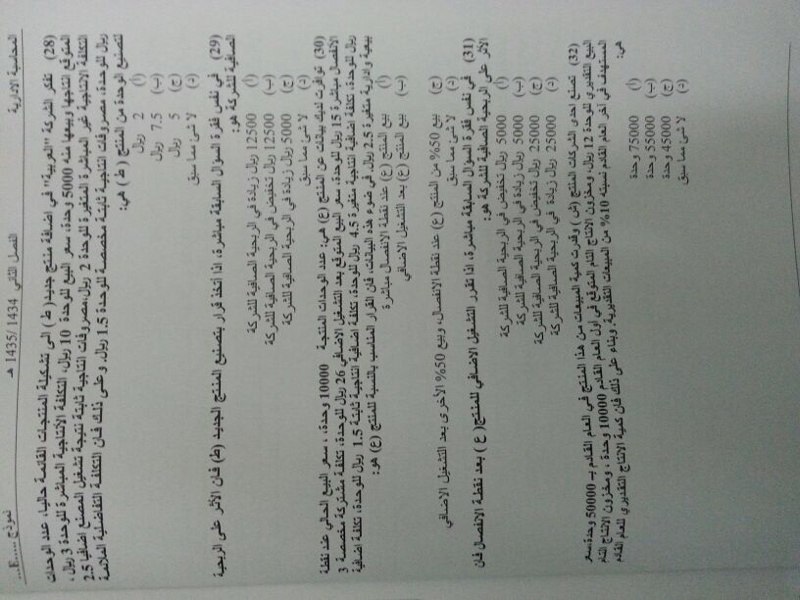 المحاسبة الادارية الفصل الثاني 1434 /1435 هـ نموذج ....E...
(28) تفكر الشركة "العربية" في اضافة منتج جديد( ط ) الى تشكيلة المنتجات القائمة حاليا، عدد الوحدات
المتوقع انتاجها وبيعها منه 5000 وحدة، سعر البيع للوحدة 10 ريال، التكلفة الأنتاجية المباشرة للوحدة 3 ريال ،
التكلفة الانتاجية غير المباشرة المتغيرة للوحدة 2 ريال،مصروفات انتاجية ثابتة نتيجة تشغيل المصنع اضافيا 2.5
ريال للوحدة، مصروفات انتاجية ثابتة مخصصة للوحدة 1.5 ريال. وعلى ذلك فان التكلفة التفاضلية الملائمة
لتصنيع الوحدة من المنتج ( ط ) هي:
(أ) 2 ريال
(ب) 7.5 ريال
(ج) 5 ريال
(د) لا شئ مما سبق
(29) في نفس فقرة السؤال السابقة مباشرة، اذا أتخذ قرار بتصنيع المنتج الجديد (ط) فان الأثر على الربحية
الصافية للشركة هو:
(أ) 12500 ريال زيادة في الربحية الصافية للشركة
(ب) 12500 ريال تخفيض في الربحية الصافية للشركة
(ج) 5000 ريال زيادة في الربحية الصافية للشركة
(د) لا شئ مما سبق
(30) توافرت لديك بيانات عن المنتج (ع) هي: عدد الوحدات المنتجة 10000 وحدة، ، سعر البيع الحالي عند نقطة
الانفصال مباشرة 15 ريال للوحدة، سعر البيع المتوقع بعد التشغيل الاضافي 26 ريال للوحدة، تكلفة مشتركة مخصصة 3
ريال للوحدة، تكلفة اضافية انتاجية متغيرة 4.5 ريال للوحدة، تكلفة اضافية انتاجية ثابتة 1.5 ريال للوحدة، تكلفة اضافية
بيعية وادارية متغيرة 2.5 ريال. في ضوء هذه البيانات، فان القرار المناسب بالنسبة للمنتج (ع) هو:
(أ) بيع المنتج (ع) عند نقطة الانفصال مباشرة
(ب) بيع المنتج (ع) بعد التشغيل الاضافي
(ج) بيع 50% من المنتج (ع) عند نقطة الانفصال، وبيع 50% الأخرى بعد التشغيل الاضافي
(د) لا شئ مما سبق
(31) في نفس فقرة السؤال السابقة مباشرة، اذا تقرر التشغيل الاضافي للمنتج( ع ) بعد نقطة الانفصال فان
الأثر على الربحية الصافية للشركة هو:
(أ) 5000 ريال تخفيض في الربحية الصافية للشركة
(ب) 5000 ريال زيادة في الربحية الصافية للشركة
(ج) 25000 ريال تخفيض في الربحية الصافية للشركة
(د) 25000 ريال زيادة في الربحية الصافية للشركة
(32) تصنع احدى الشركات المنتج (ش ) وقدرت كمية المبيعات من هذا المنتج في العام القادم بـ 50000 وحدة،سعر
البيع التقديري للوحدة 12 ريال، ومخزون الانتاج التام المتوقع في أول العام القادم 10000 وحدة ، ومخزون الانتاج التام
المستهدف في آخر العام القادم نسبته 10% من المبيعات التقديرية. وبناء على ذلك فان كمية الانتاج التقديري للعام القادم
هي:
(أ) 75000 وحدة
(ب) 55000 وحدة
(ج) 45000 وحدة
(د) لا شئ مما سبق